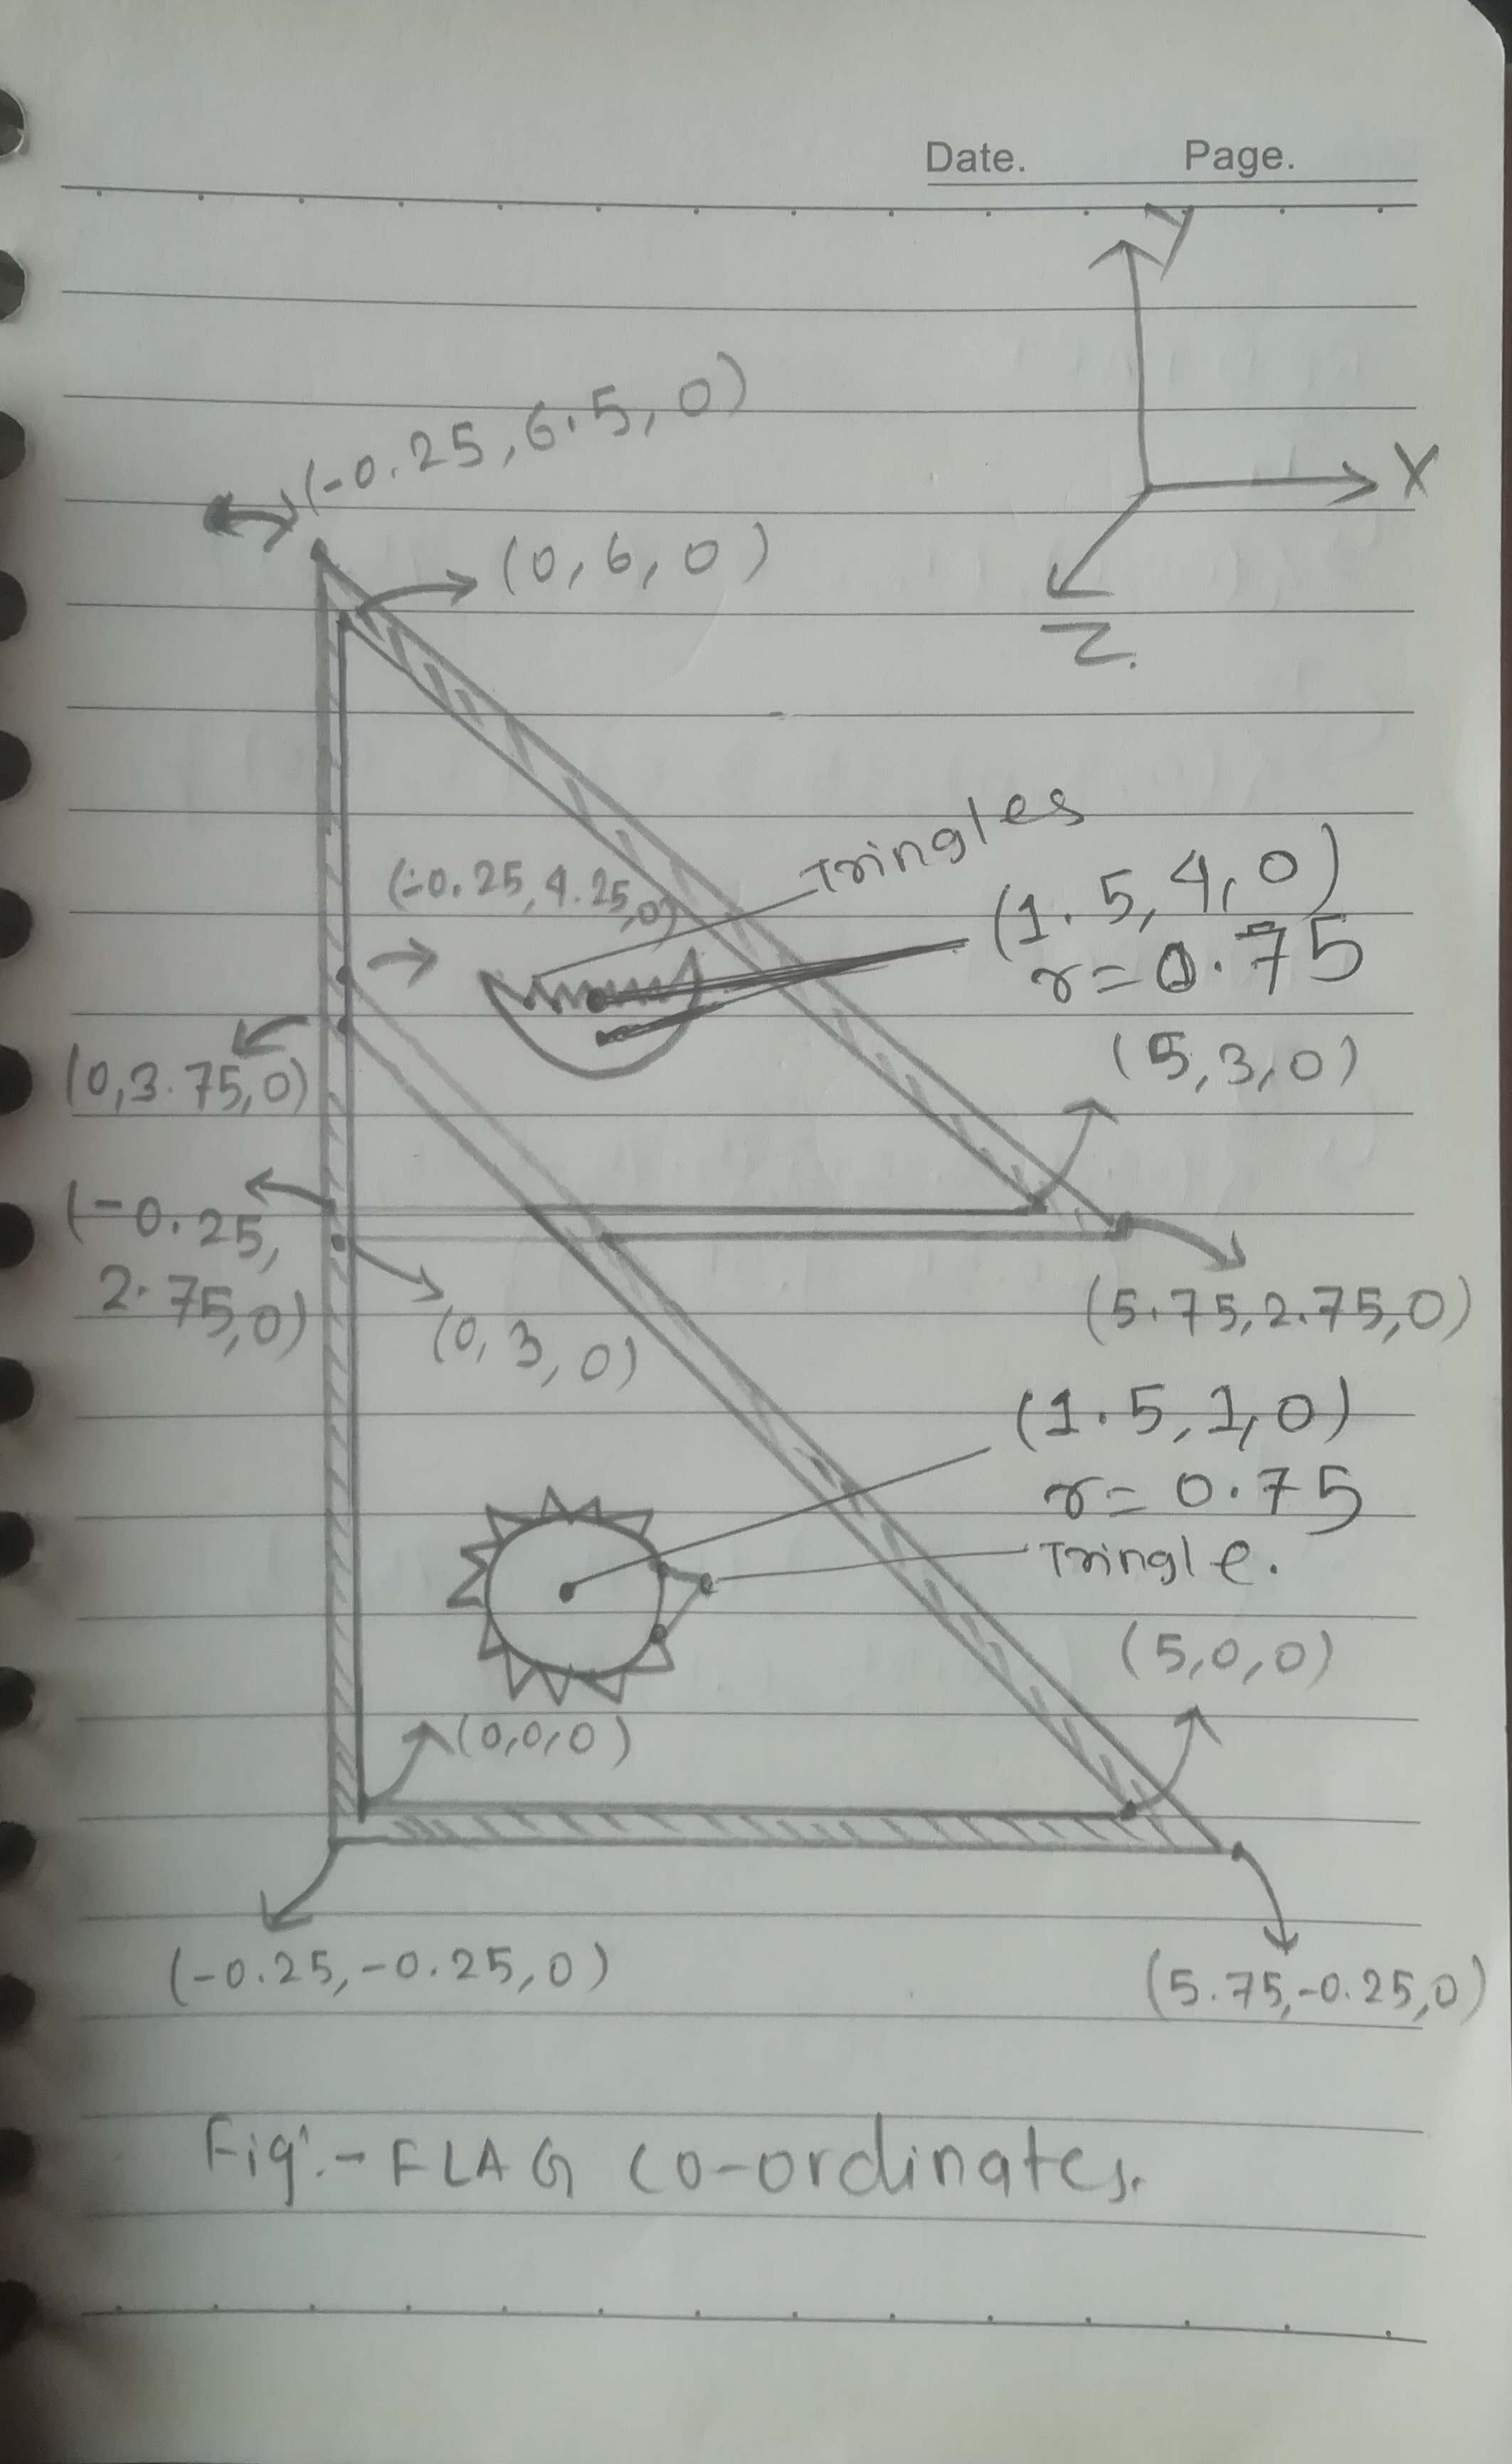 Date. Page.
Y
(-0.25,6.5,0)
X
(0,6,0)
Z.
Tringles
(-0.25,4.25,0)
(1.5,4,0)
r=0.75
(5,3,0)
(0,3.75,0)
(-0.25,
2.75,0)
(5.75,2.75,0)
(0,3,0)
(1.5,1,0)
r=0.75
Tringle.
(5,0,0)
(0,0,0)
(-0.25,-0.25,0)
(5.75,-0.25,0)
Fig:-FLAG CO-ordinates.